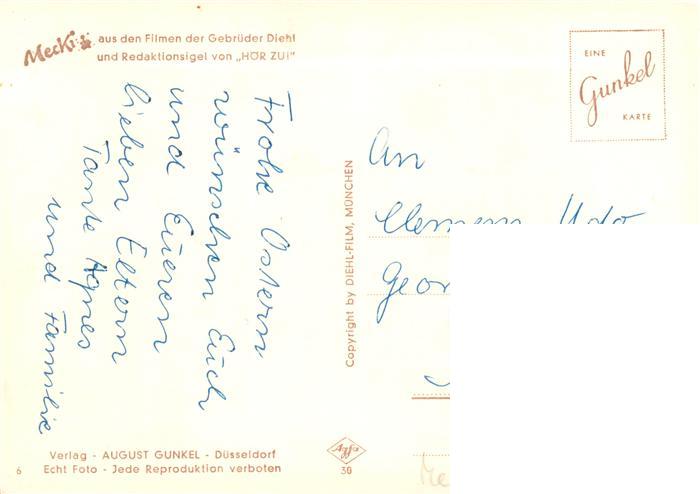 Mecki aus den Filmen der Gebrüder Diehl
und Redaktionsigel von „HÖR ZU!"
EINE
Gunkel
KARTE
Frohe Ostern
wünschen Euch
und Eueren
lieben Eltern
Tante Agnes
und Familie
Copyright by DIEHL-FILM, MÜNCHEN
An
Clemens Udo
Verlag - AUGUST GUNKEL - Düsseldorf
6 Echt Foto - Jede Reproduktion verboten
Agfa
30